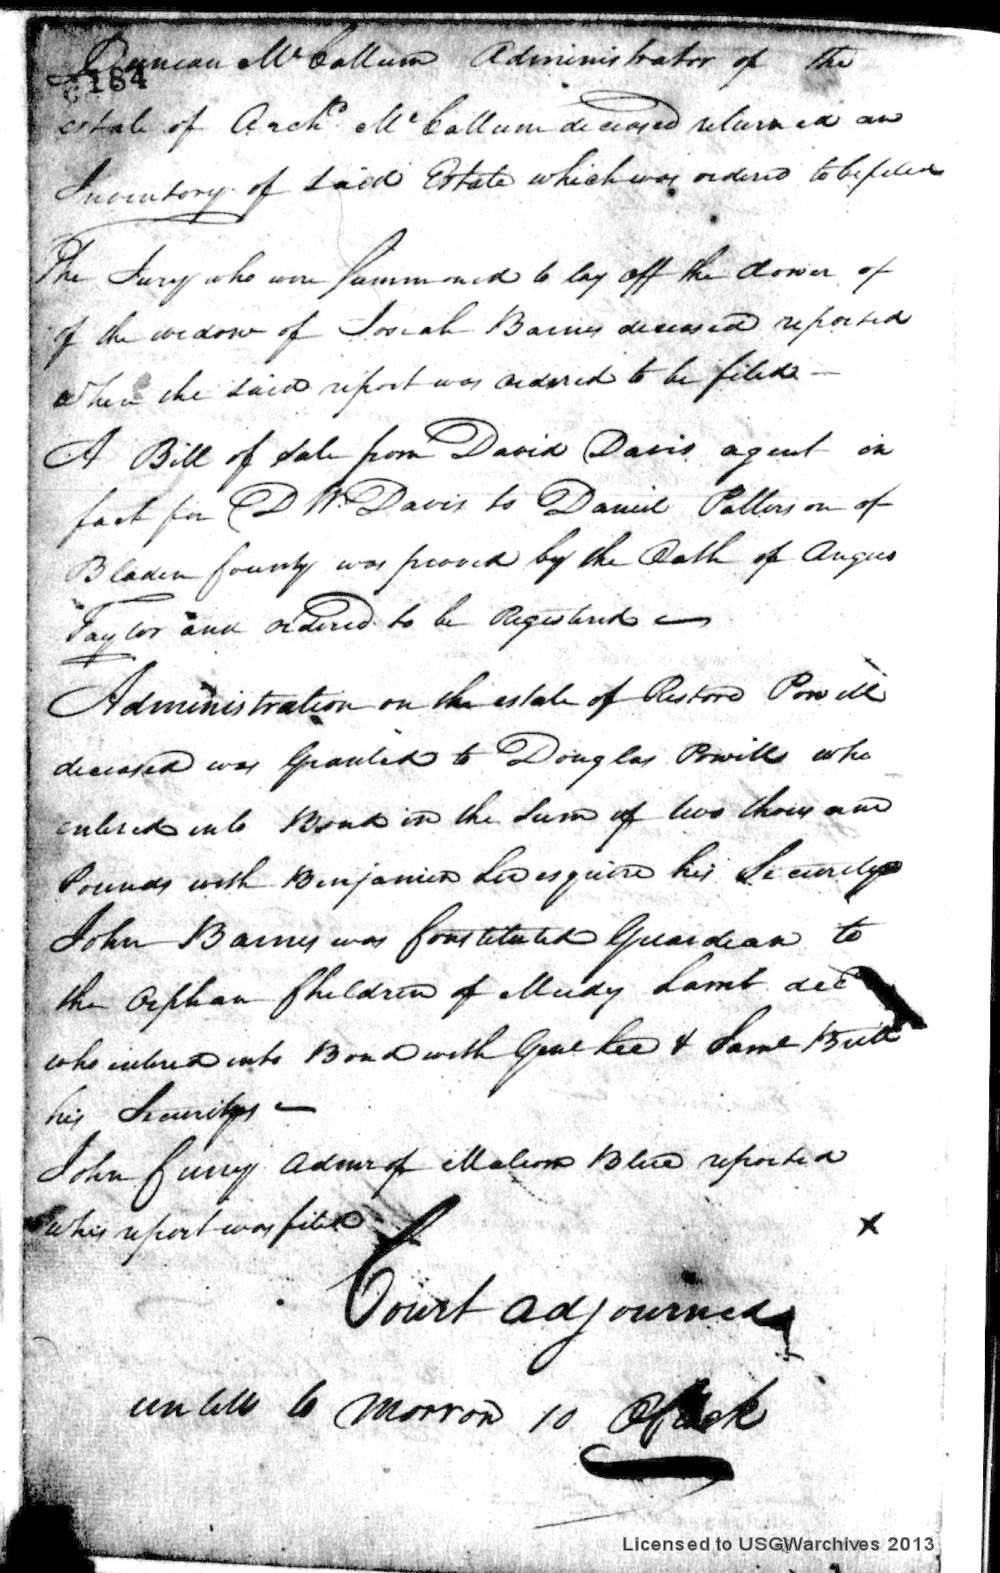 Duncan McCallum Administrator of the
184
estate of Archd. McCallum deceased returned an
Inventory of said Estate which was ordered to be filed
The Jury who were Summoned to lay off the dower of
of the widow of Josiah Barnes deceased reported
when the said report was ordered to be filed —
A Bill of Sale from David Davis agent in
fact for D W Davis to Daniel Patterson of
Bladen County was proved by the Oath of Angus
Taylor and ordered to be Registered —
Administration on the estate of Restore Powell
deceased was Granted to Douglas Powells who
entered into Bond in the Sum of two thousand
Pounds with Benjamin Lee esquire his Securitys
John Barnes was Constituted Guardean to
the Orphan Children of Meedy Lamb decd
who entered into Bond with Genl Lee & Saml Britt
his Securitys —
John Curry Admr of Malcom Blue reported
whis report was filed
x
Court adjourned
untill to morrow 10 Oclock
Licensed to USGWarchives 2013